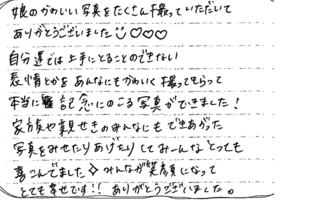 娘のかわいい写真をたくさん撮っていただいて
ありがとうございました☺♡♡♡
自分達では上手にとることのできない
表情とかをあんなにもかわいく撮ってもらって
本当に記念にのこる写真ができました！
家族や親せきのみんなにもできあがった
写真をみせたりあげたりしてみーんなとっても
喜こんでました✧みんなが笑顔になって
とても幸せです!! ありがとうございました。